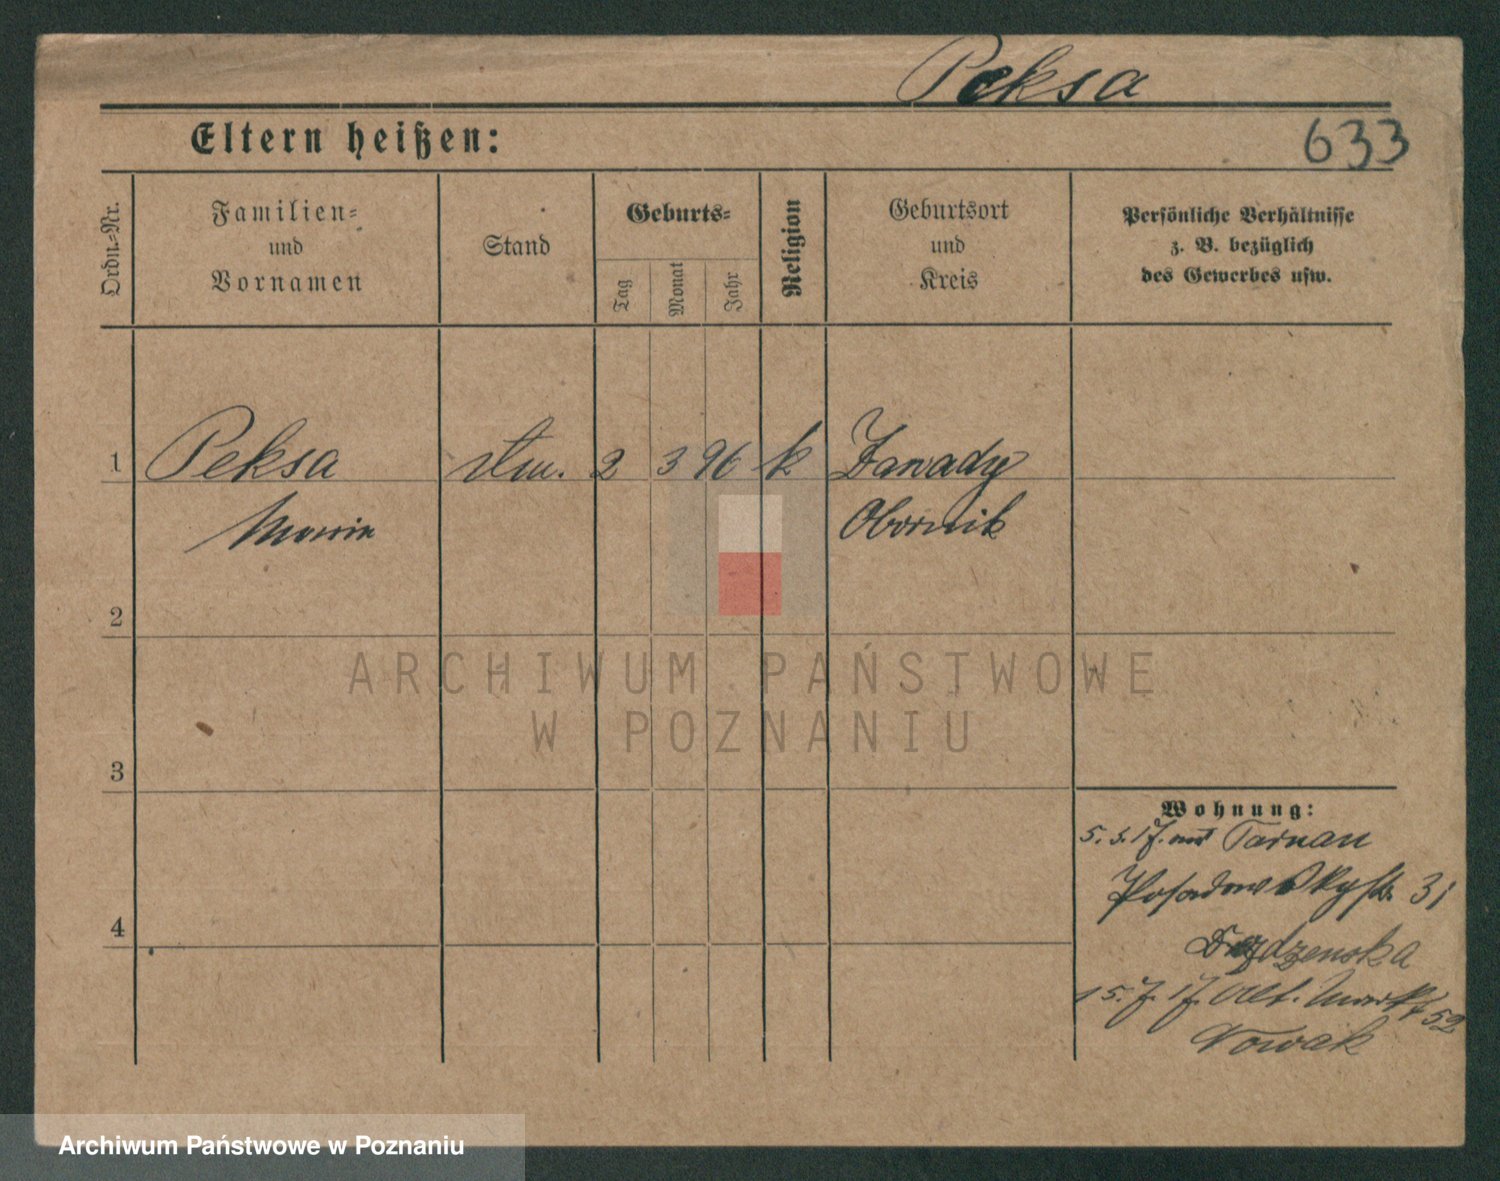 Peksa
Eltern heißen:
633
Ordn.-Nr.
Familien-
und
Vornamen
Stand
Geburts-
Tag
Monat
Jahr
Religion
Geburtsort
und
Kreis
Persönliche Verhältnisse
z. B. bezüglich
des Gewerbes usw.
1 Peksa 2 3 96 k Zawady
Obornik
2
ARCHIWUM PAŃSTWOWE
W POZNANIU
3
Wohnung:
5. 3. 17. aus Tarnau
31
4
15. 7. 17. Alt. Markt 52
Nowak
Archiwum Państwowe w Poznaniu